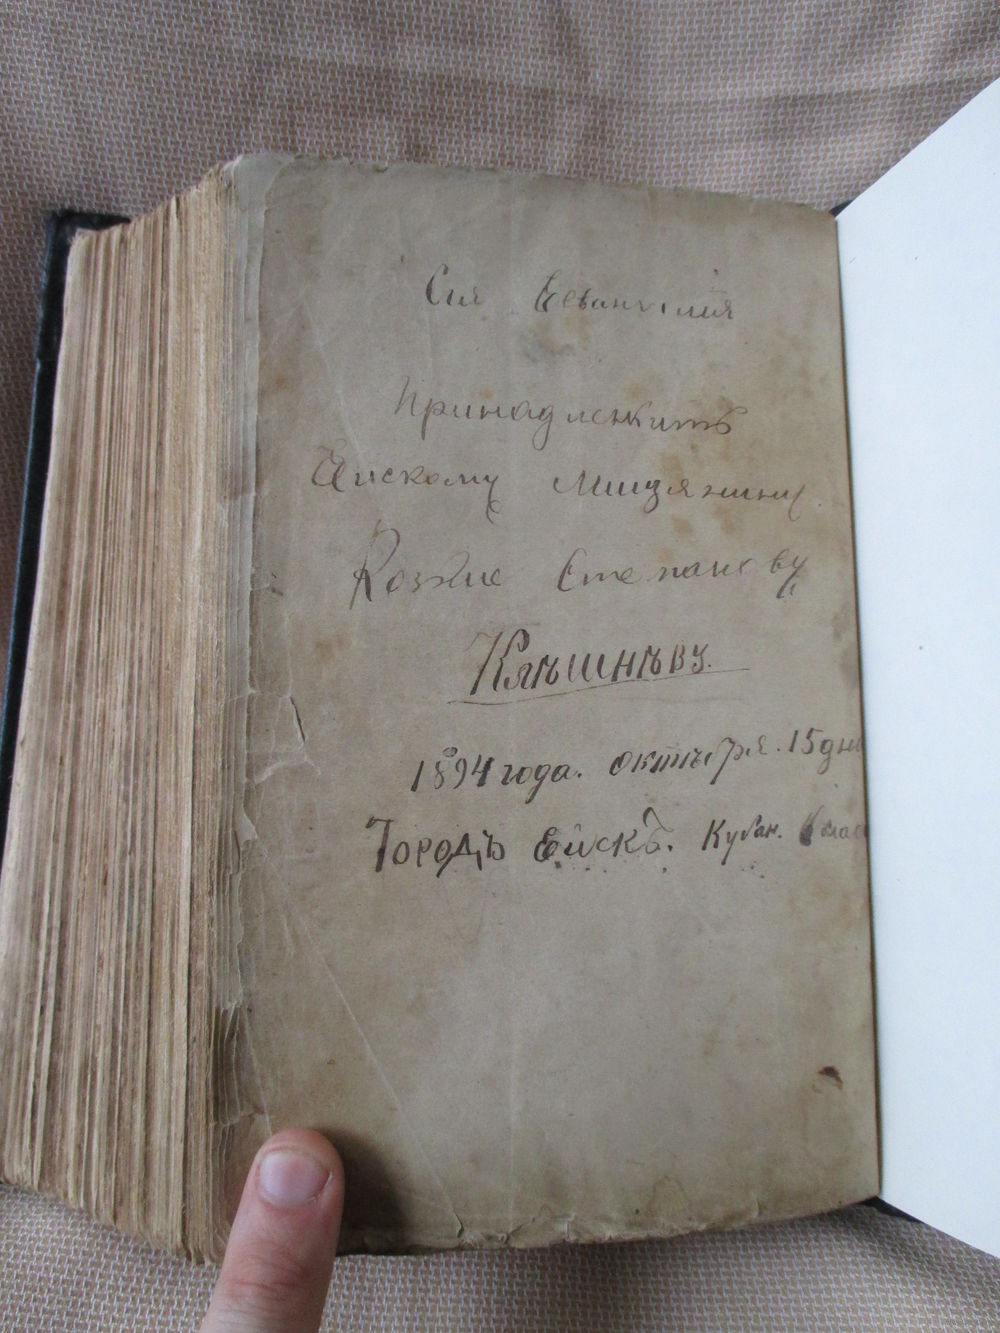 Сия Евангилия
принадлежитъ
Ейскому мищянину
Козме Степанову
Клѣшнѣву.
1894 года. октября. 15 дня
Городъ Ейскъ. Кубан. Област